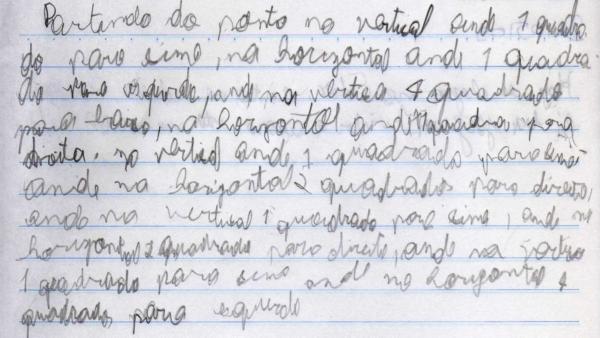 Partindo do ponto na vertical ande 1 quadra
do para sima, na horizontal ande 1 quadra
do para esquerda, ande na vertica 4 quadrado
para baxo, na horizontal ande quadra para
direita. na vertical ande 1 quadrado para sima
ande na horizontal 2 quadrados para direito,
ande na vertical 1 quadrado para sima, ande na
horizontal 2 quadrado para direito, ande na
1 quadrado para sima ande na horizontal 4
quadrados para esquerdo